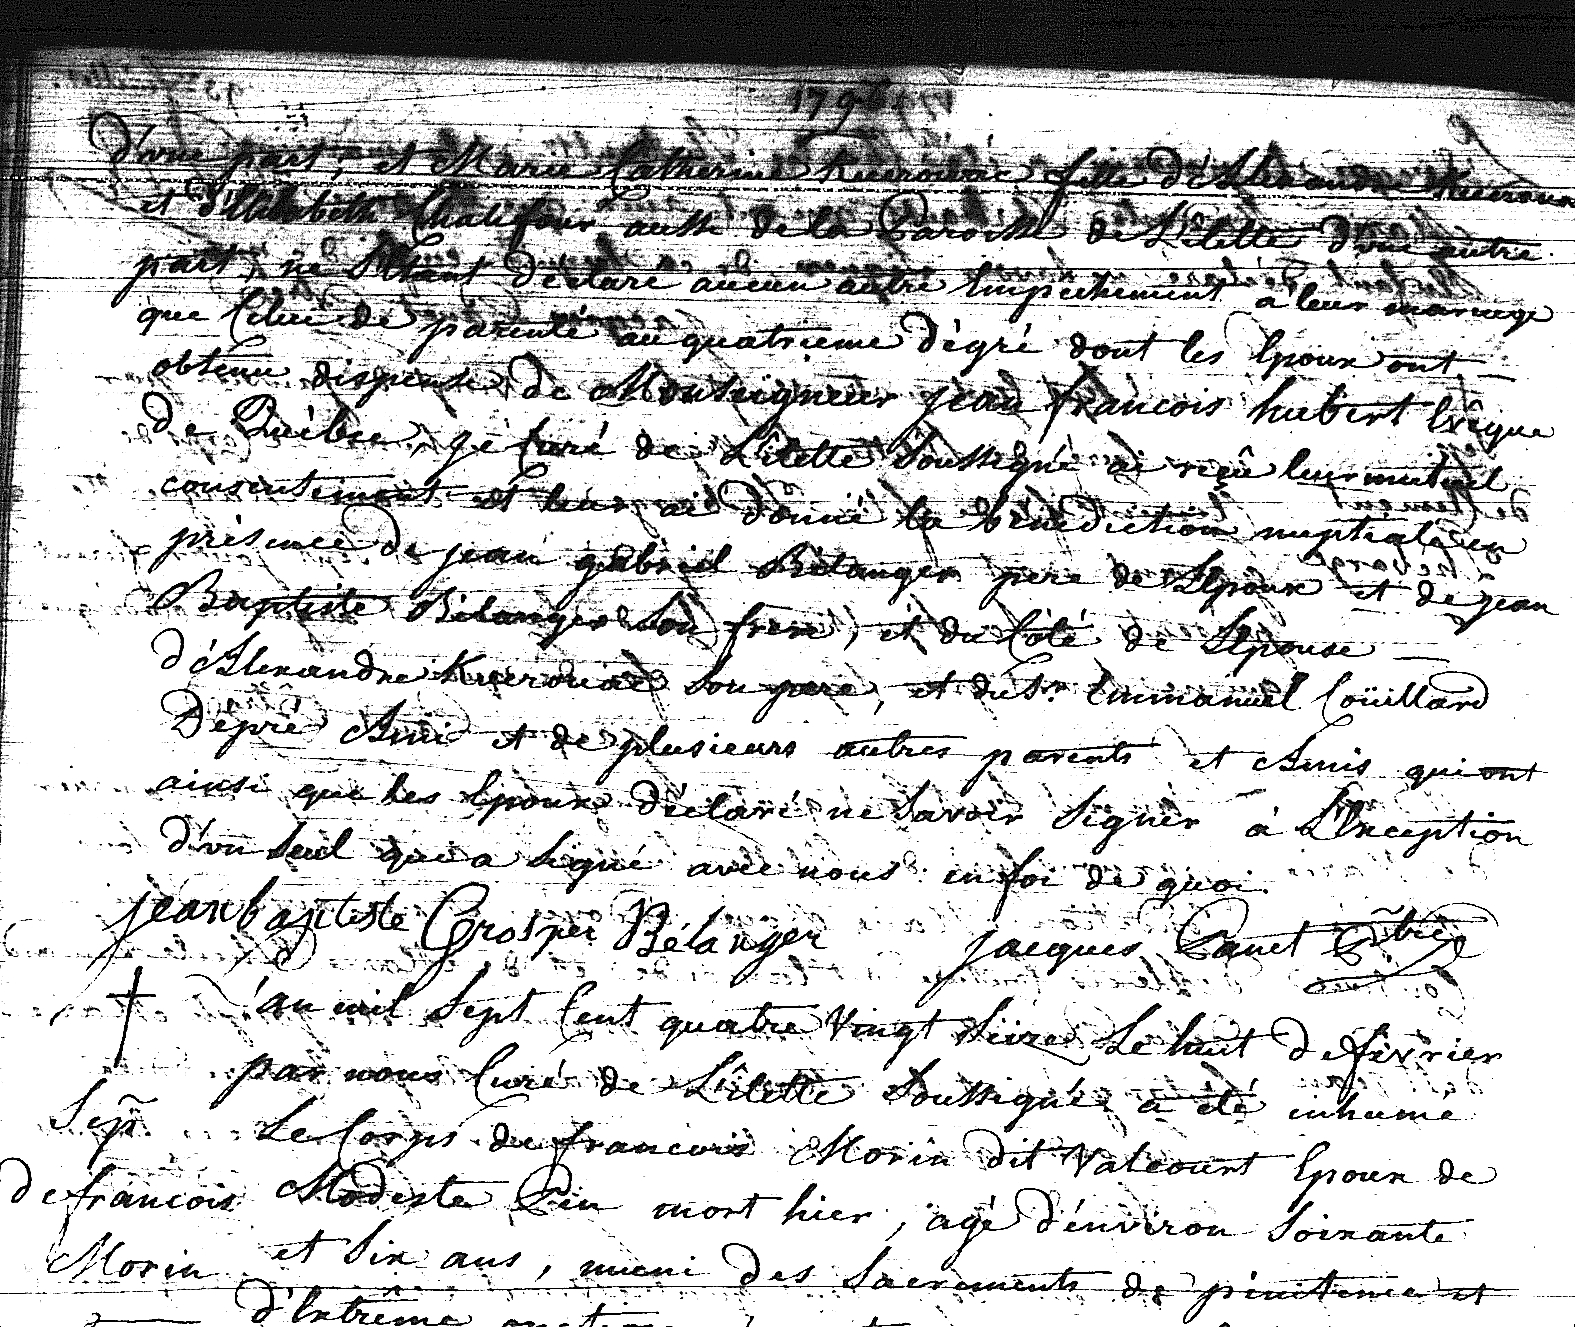 1796
d'une part, et Marie Catherine Kuerouac fille d'Alexandre Kuerouac
et d'Elizabeth Chalifour aussi de la Paroisse de L'ilette d'une autre
part, ne S'étant déclaré aucun autre Empêchement à leur mariage
que Celui de parenté au quatrieme dégré dont les Epoux ont
obtenu dispense de Monseigneur jean francois hubert Evêque
de Québec, je Curé de L'ilette Soussigné ai reçû leur mutuel
consentement et leur ai donné la bénédiction nuptiale en
présence de jean gabriel Bélanger pere de L'Epoux et de jean
Baptiste Bélanger Son frere, et du Côté de L'Epouse
d'Alexandre Kuerouac Son pere, et du Sr. Emmanuel Coüillard
Dépré Ami et de plusieurs autres parents et Amis qui ont
ainsi que les Epoux déclaré ne Savoir Signer à L'Exception
d'un Seul qui a Signé avec nous en foi de quoi.
jean baptiste Grosper Bélanger jacques Panet Ptre
L'an mil Sept Cent quatre Vingt Seize Le huit de fevrier
par nous Curé de L'ilette Soussigné a été inhumé
Sep. Le Corps de francois Morin dit Valcourt Epoux de
de francois Modeste Pin mort hier, agé d'énviron Soixante
Morin et Six ans, muni des Sacrements de pénitence et
d'Extrême